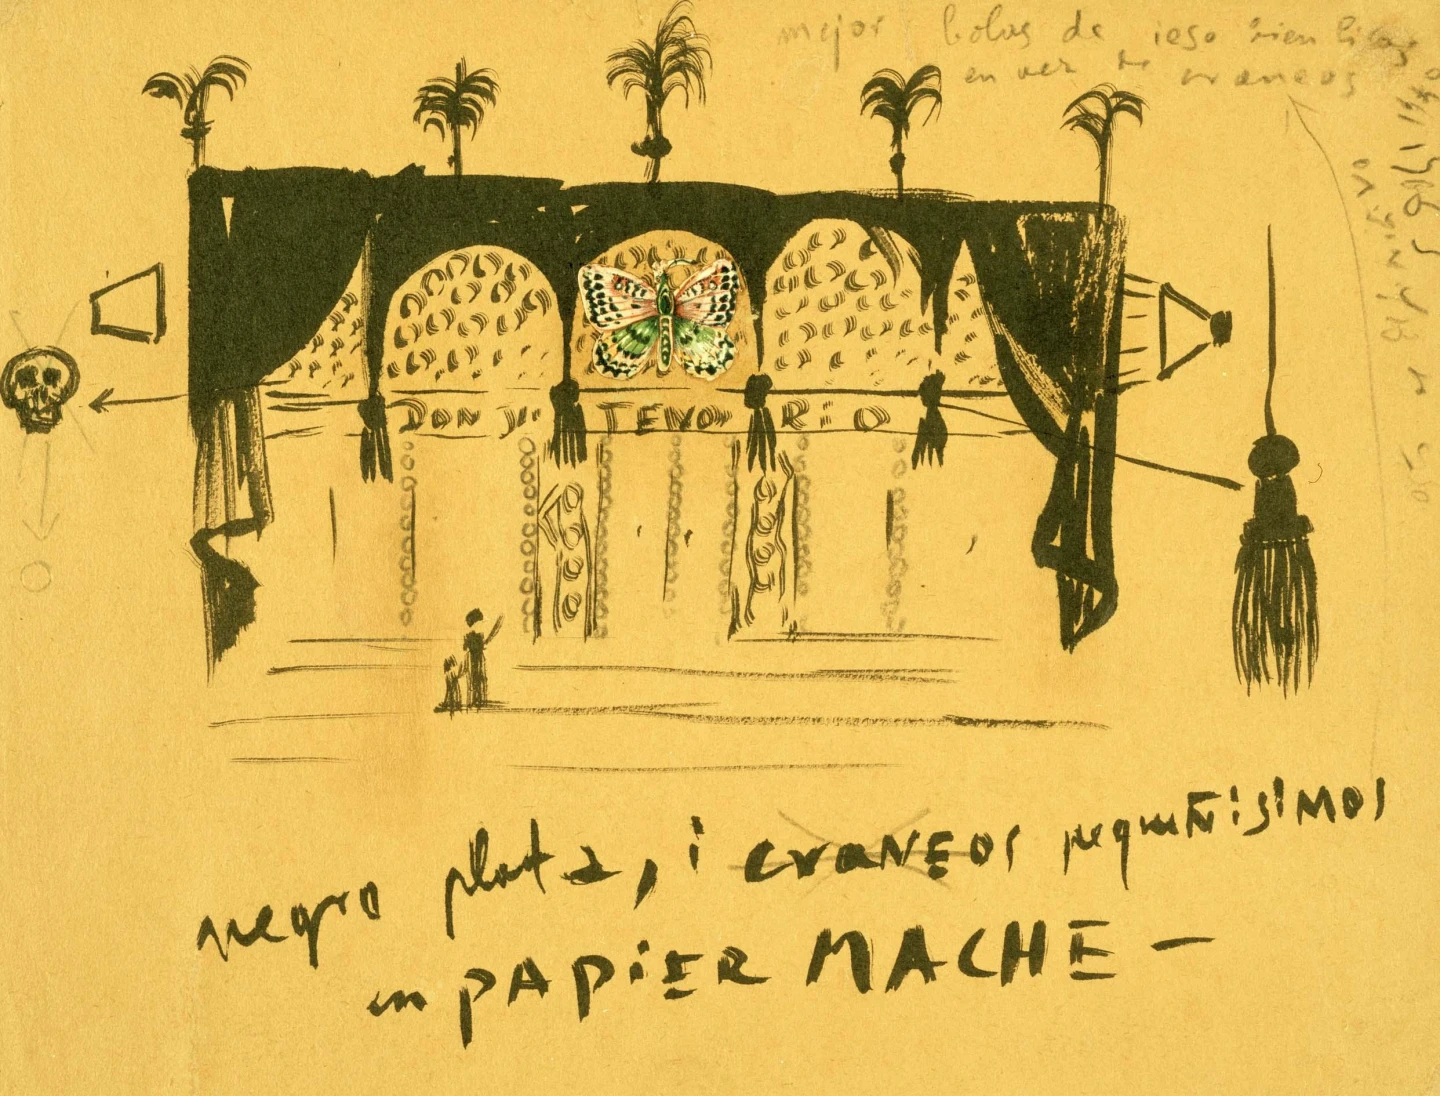 mejor bolas de ieso bien
en vez de craneos
DON JU. TENO RIO
negro plata, i craneos pequeñisimos
en PAPIER MACHE —